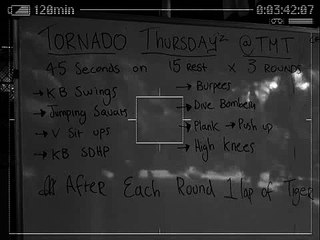 120min
0:03:42:07
TORNADO THURSDAYZ @ TMT
45 Seconds on 15 REST x 3 ROUNDS
→ KB Swings
→ Jumping Squats
→ V Sit ups
→ KB SDHP
→ Burpees
→ Dive Bombers
→ Plank → Push up
→ High Knees
After Each Round 1 lap of Tiger